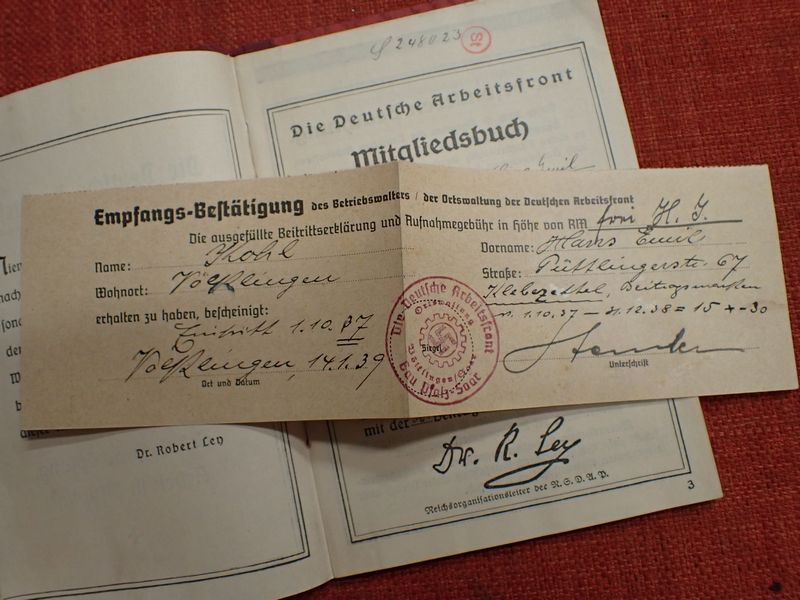 S 248023 St
Die Deutsche Arbeitsfront
Mitgliedsbuch
Emil
Empfangs-Bestätigung des Betriebswalters / der Ortswaltung der Deutschen Arbeitsfront
Die ausgefüllte Beitrittserklärung und Aufnahmegebühr in Höhe von RM frei H. J.
Name: Kohl Vorname: Hans Emil
Wohnort: Völklingen Straße: Püttlingerstr. 67
erhalten zu haben, bescheinigt: Klebezettel, Beitragsmarken
Eintritt 1.10.37 v. 1.10.37 – 31.12.38 = 15 × -30
Völklingen, 14.1.39 Siegel
Ort und Datum Unterschrift
Die Deutsche Arbeitsfront
Ortswaltung
Völklingen/Saar
Gau Pfalz-Saar
mit der
Dr. Robert Ley
Dr. R. Ley
Reichsorganisationsleiter der N.S.D.A.P.
3